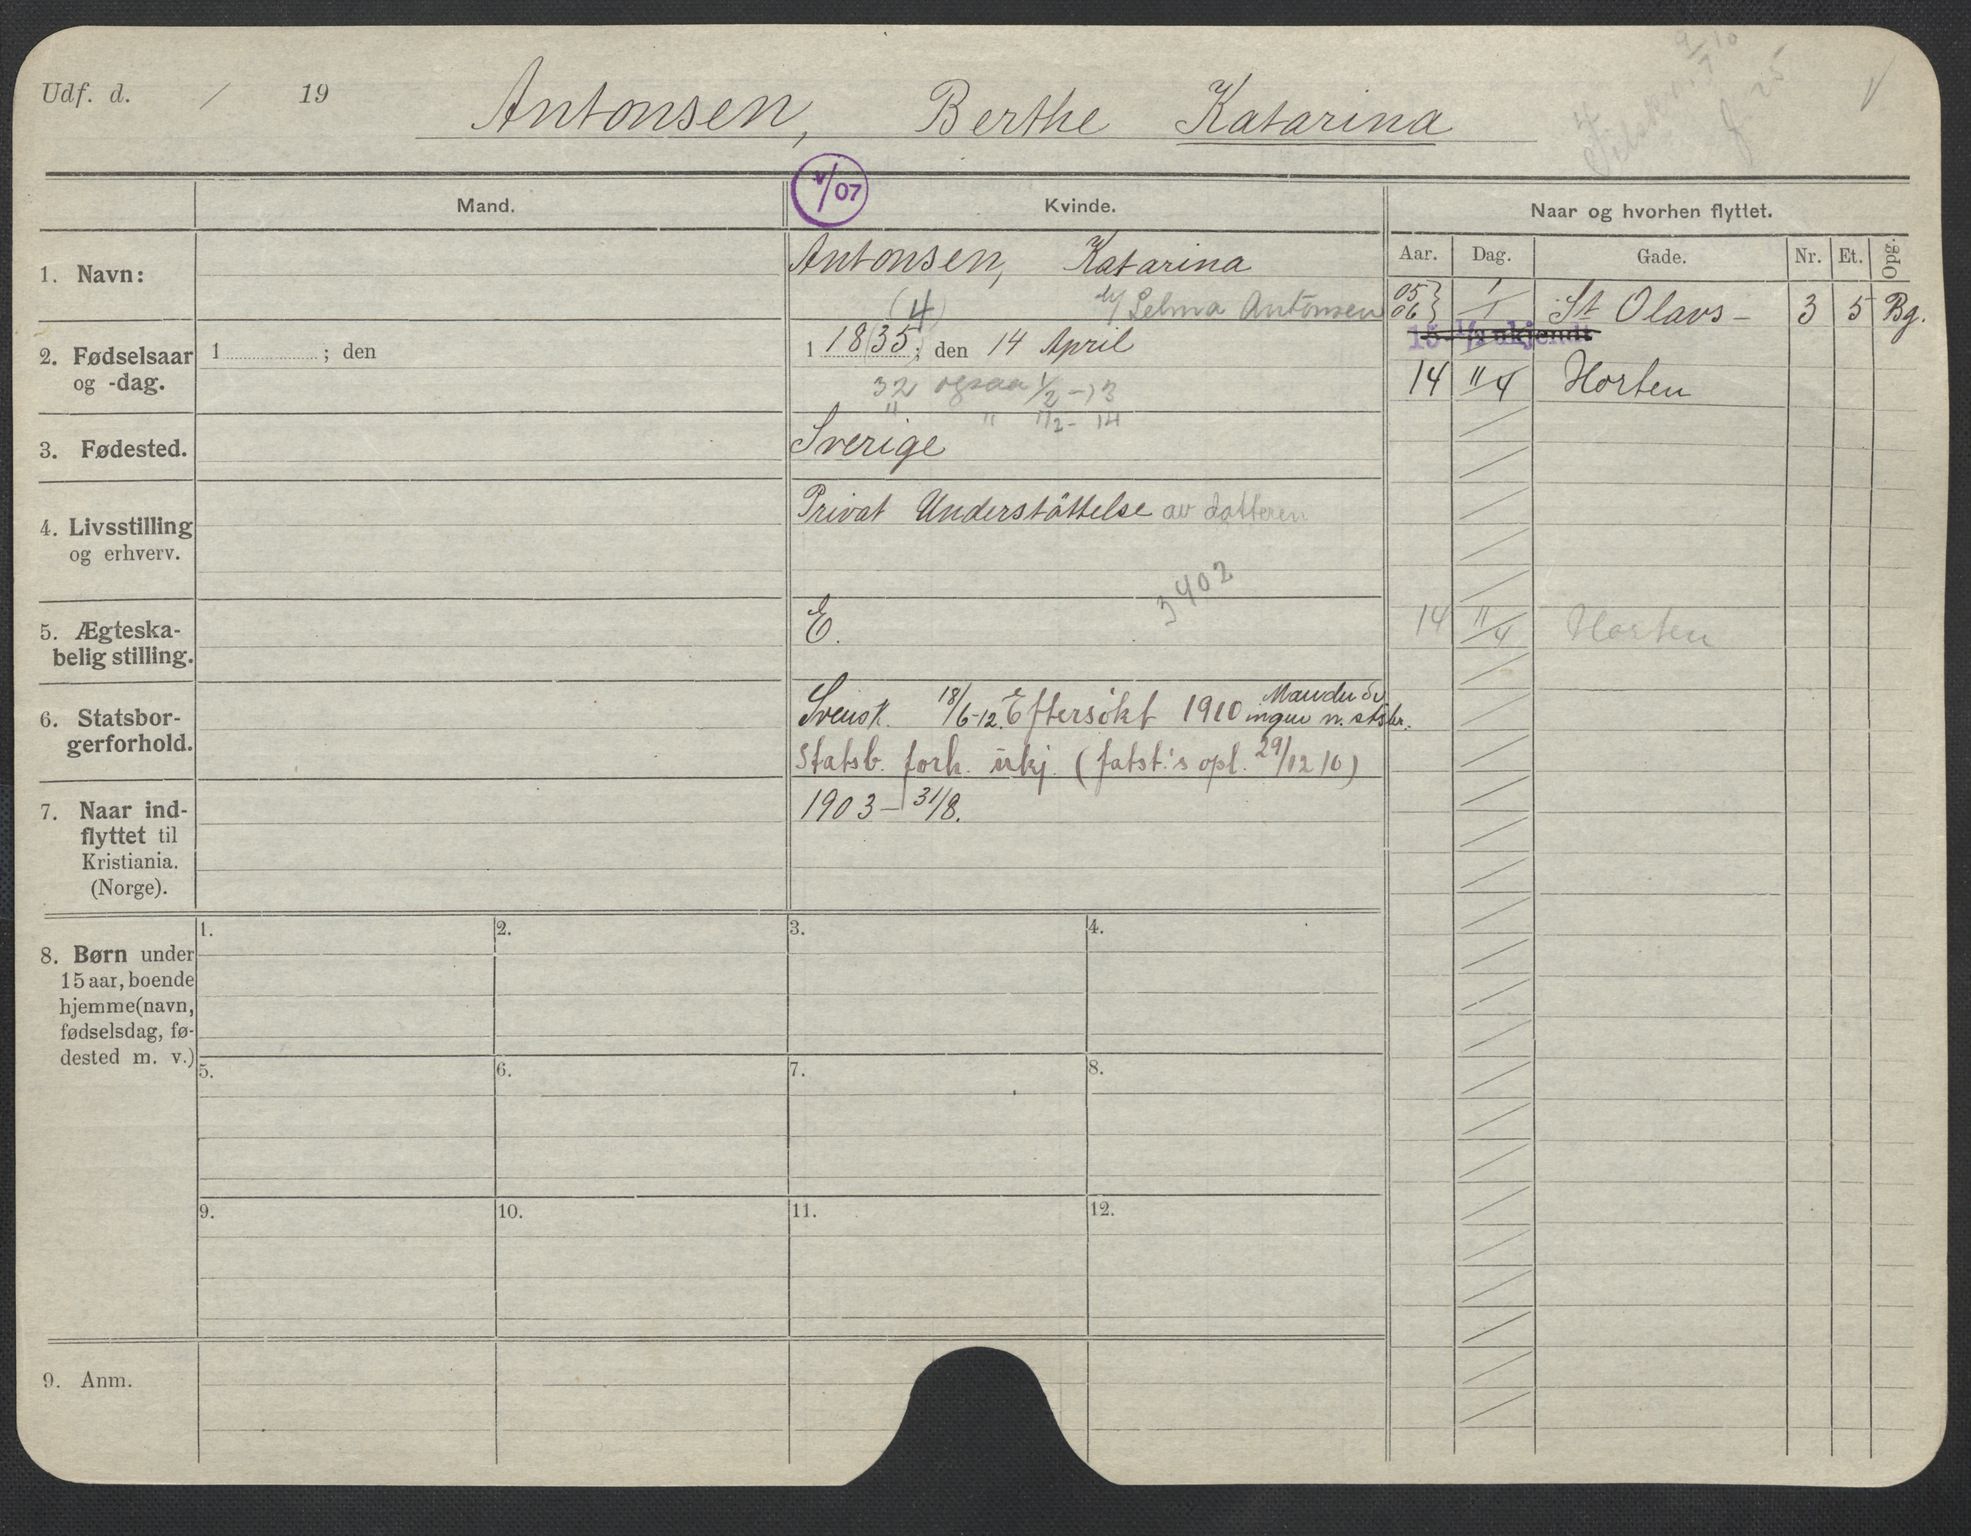 Udf. d. / 19
Antonsen, Berthe Katarina
v/07
Mand.
Kvinde.
Naar og hvorhen flyttet.
Aar. Dag. Gade. Nr. Et. Opg.
1. Navn:
Antonsen, Katarina
(4) Selma Antonsen
05 06 } 1/1 St Olavs - 3 5 Bg.
15 1/2 ukjendt
14 11/4 Horten
2. Fødselsaar og -dag.
1 ; den
1 1835 ; den 14 April
32 ogsaa 1/2 - 13
" " 1/2 - 14
3. Fødested.
Sverige
4. Livsstilling og erhverv.
Privat Understöttelse av datteren
3402
5. Ægteska-
belig stilling.
E.
14 11/4 Horten
6. Statsbor-
gerforhold.
Svensk. 18/6-12. Eftersökt 1910
ingen n. stsbr.
Statsb. forh. ukj. (fatst:'s opl. 29/12 10)
7. Naar ind-
flyttet til
Kristiania.
(Norge).
1903 - 31/8.
8. Børn under
15 aar, boende
hjemme (navn,
fødselsdag, fø-
dested m. v.)
1. 2. 3. 4.
5. 6. 7. 8.
9. 10. 11. 12.
9. Anm.